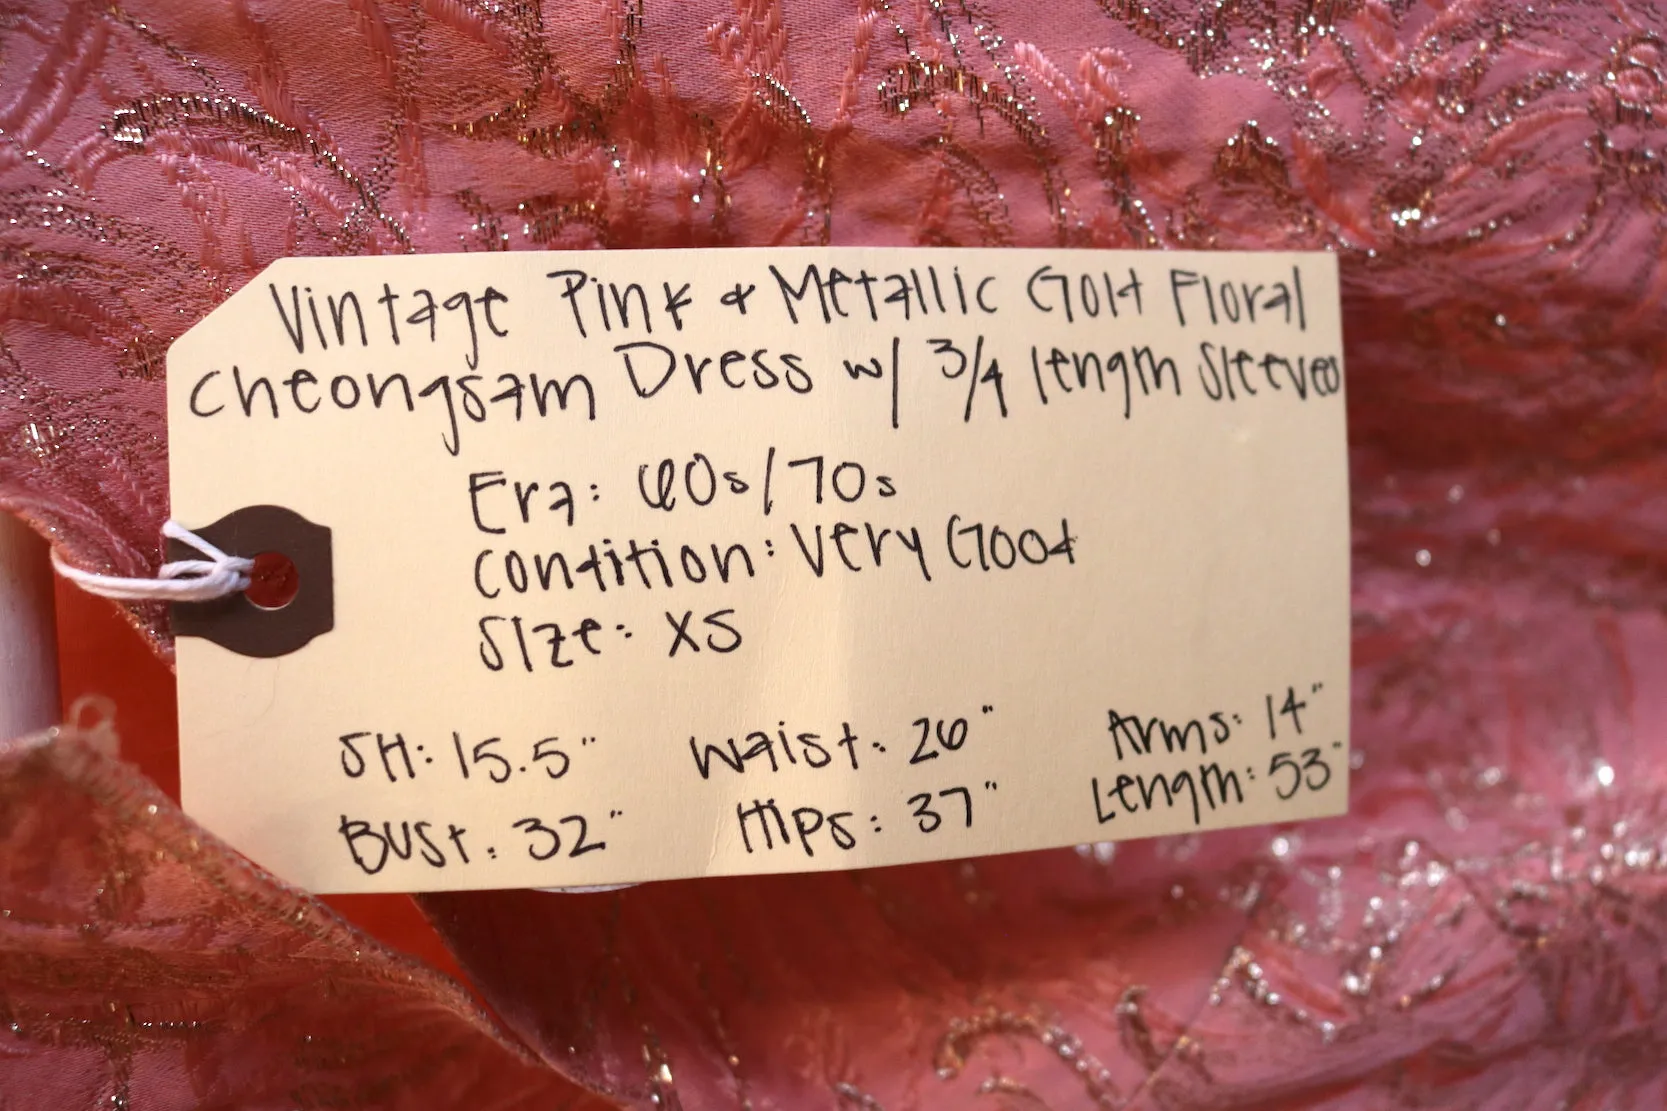 Vintage Pink & Metallic Gold Floral
Cheongsam Dress w/ 3/4 length Sleeves
Era: 60s/70s
Condition: Very Good
Size: XS
SH: 15.5" Waist: 26" Arms: 14"
Bust: 32" Hips: 37" Length: 53"